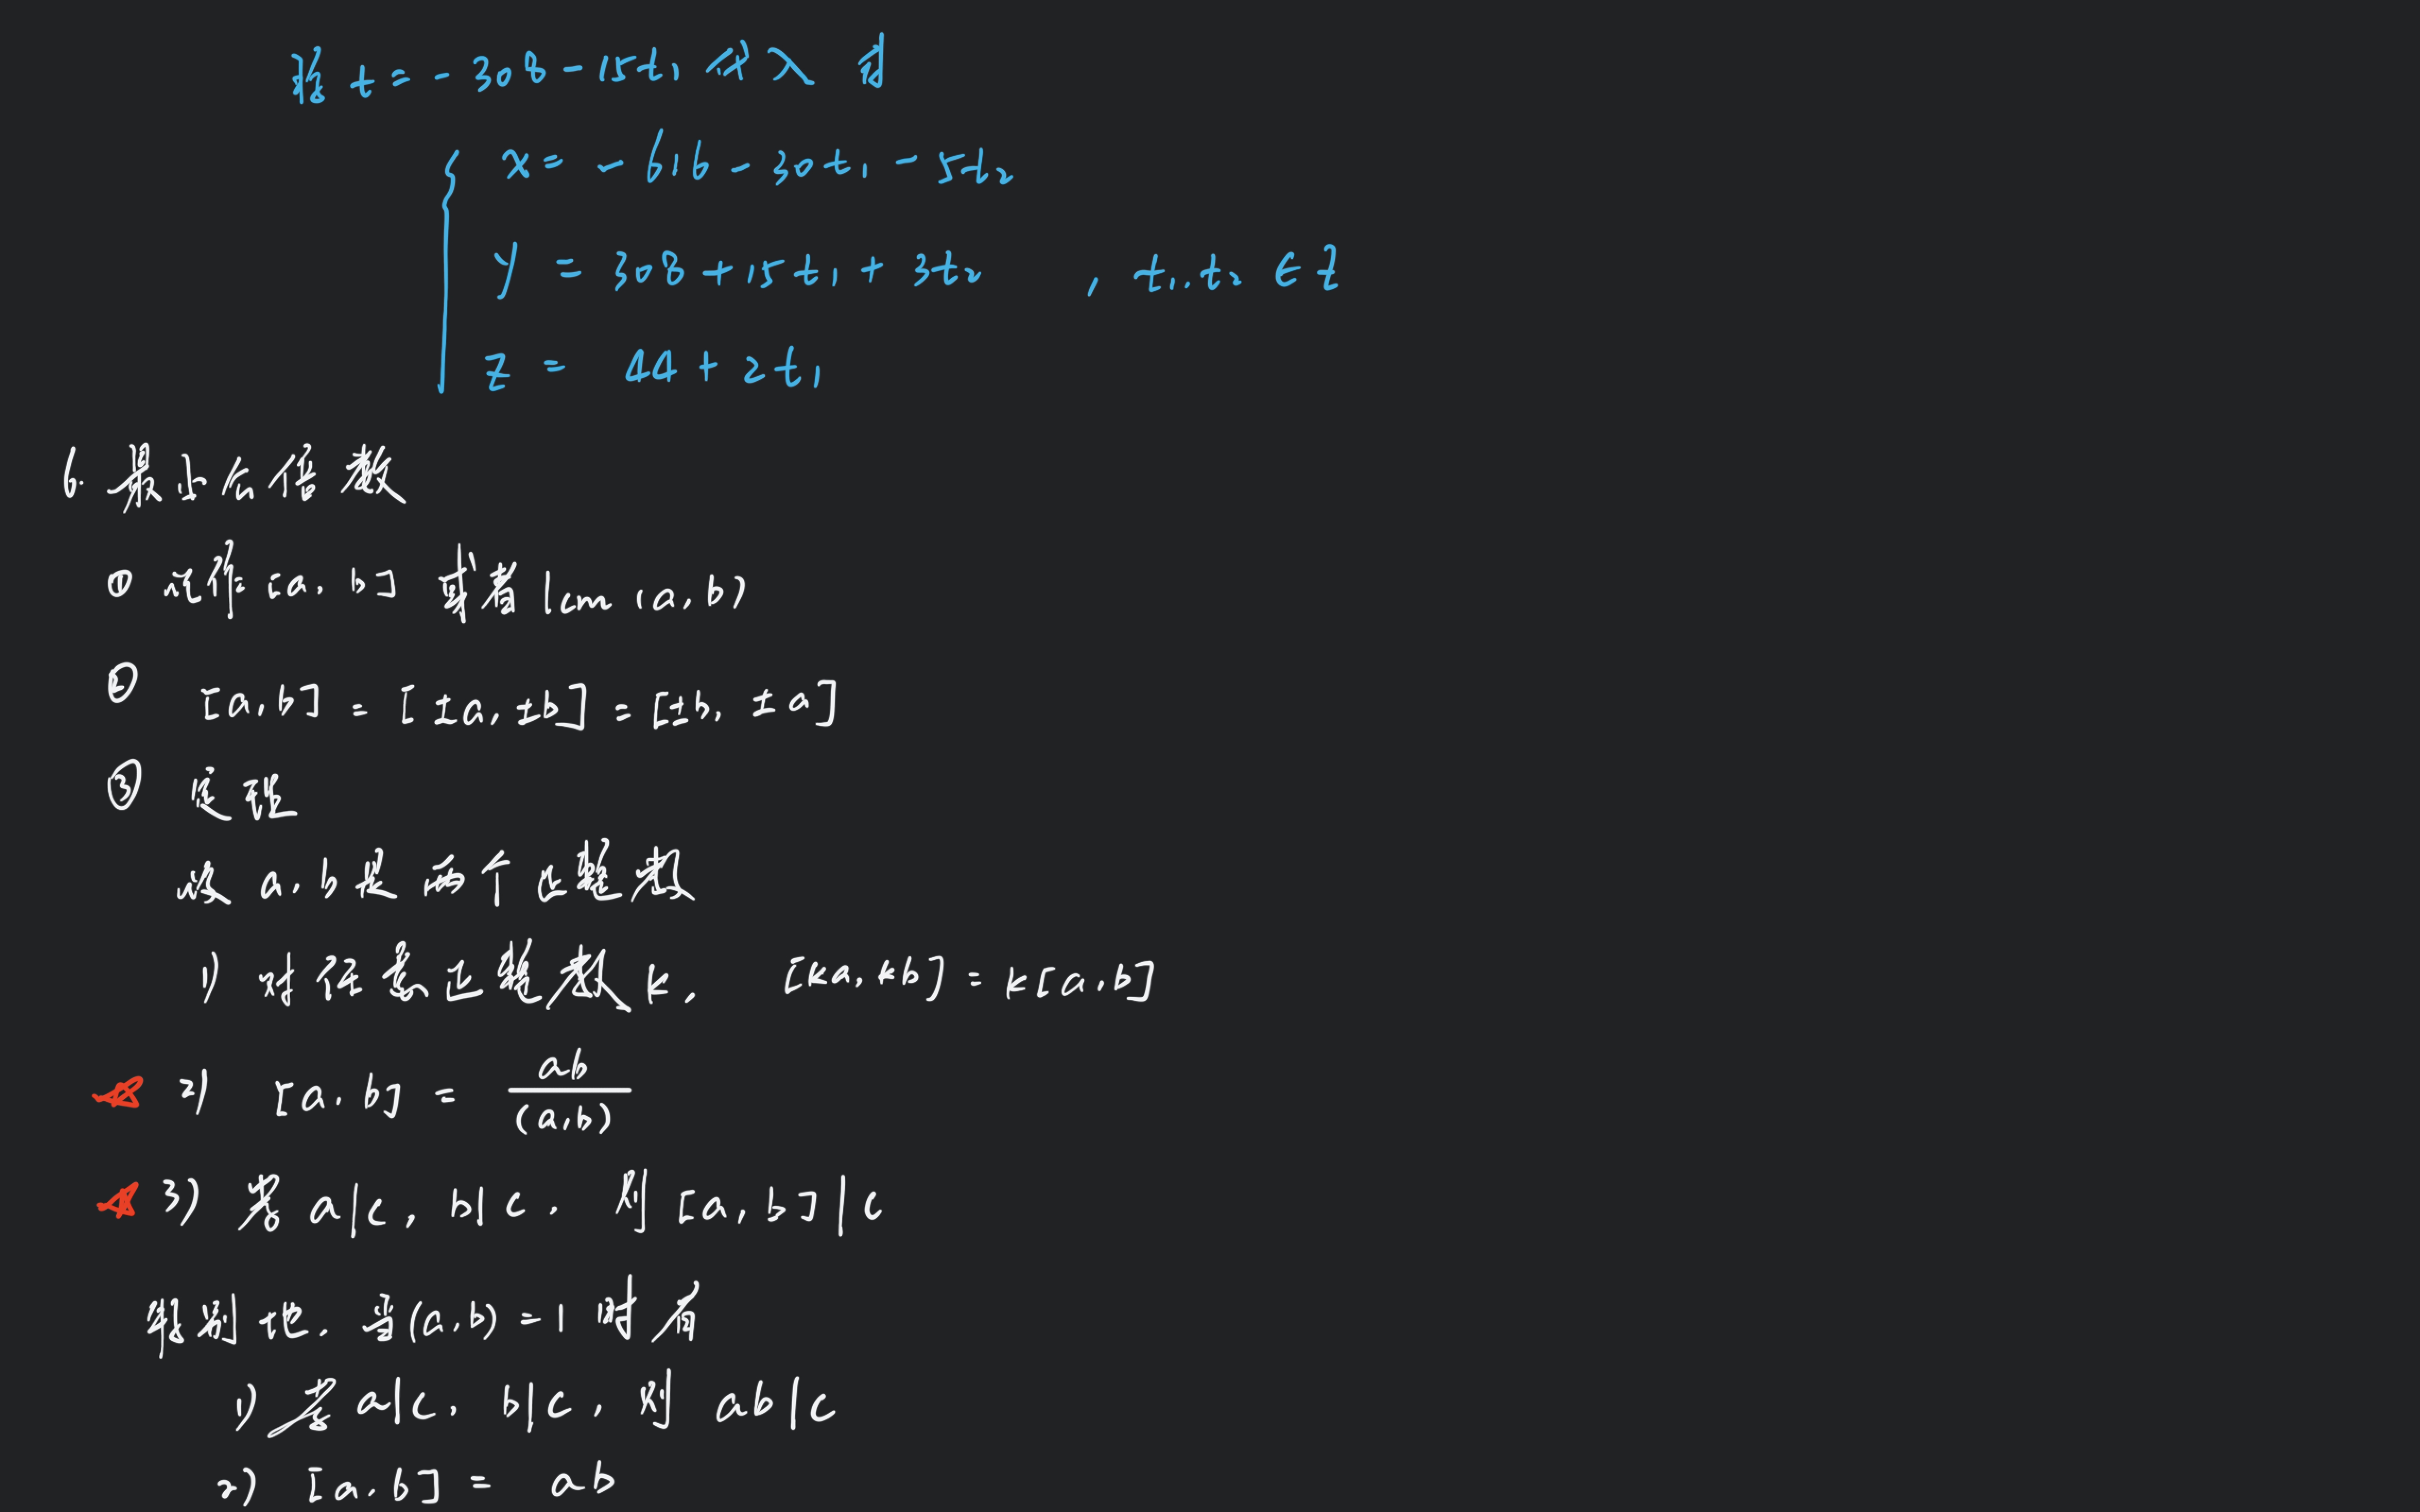 将 t = -308 - 15t₁ 代入 得
x = -616 - 30t₁ - 5t₂
y = 308 + 15t₁ + 3t₂ , t₁, t₂ ∈ Z
z = 44 + 2t₁
6. 最小公倍数
① 记作 [a, b] 或者 lcm (a, b)
② [a, b] = [±a, ±b] = [±b, ±a]
③ 定理
设 a, b 是两个正整数
1) 对任意正整数 k, [ka, kb] = k[a, b]
2) [a, b] = ab/(a,b)
3) 若 a|c, b|c, 则 [a, b] | c
特别地, 当 (a, b) = 1 时有
1) 若 a|c, b|c, 则 ab|c
2) [a, b] = ab